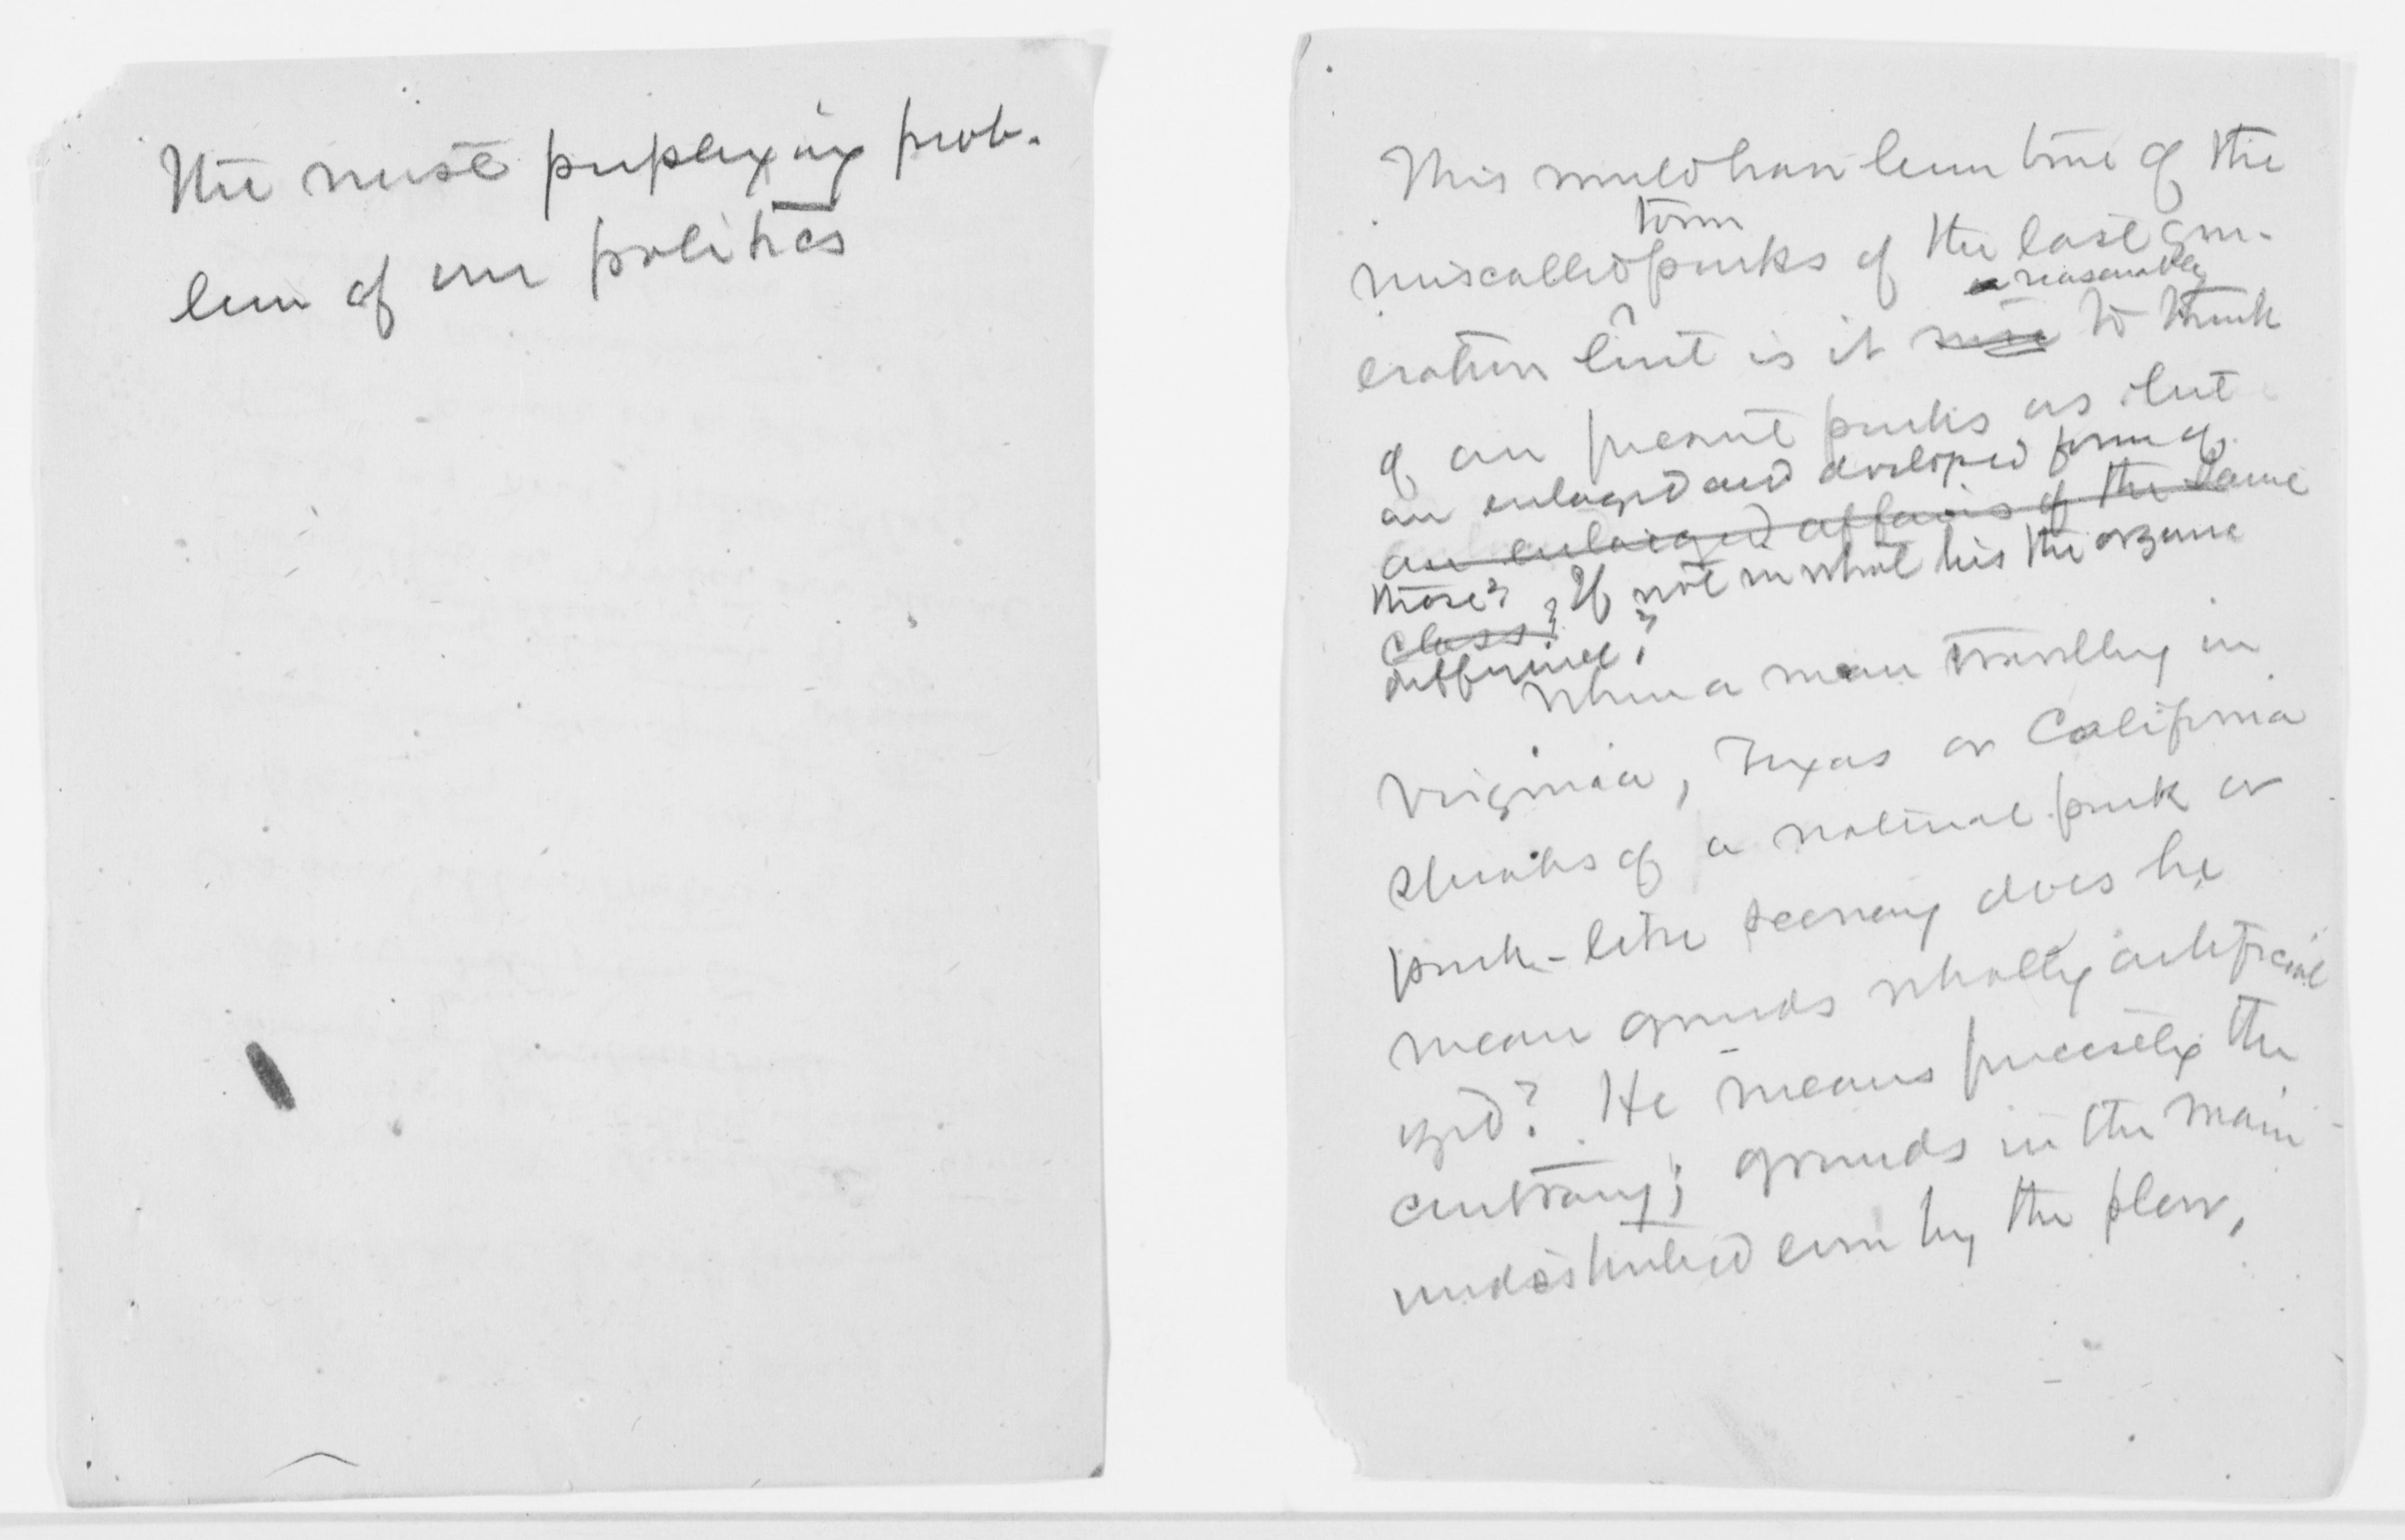 The most perplexing prob-
lem of our politics
This would have been true of the
town
miscalled parks of the last gen-
reasonable
eration but is it wise to think
of our present parks as but
an enlarged and developed form of
an enlarged affairs of the same
those? If not in what lies the organic
class?
difference?
When a man travelling in
Virginia, Texas or California
speaks of a natural park or
park-like scenery does he
mean grounds wholly artificial
ized? He means precisely the
contrary; grounds in the main
undisturbed even by the plow,